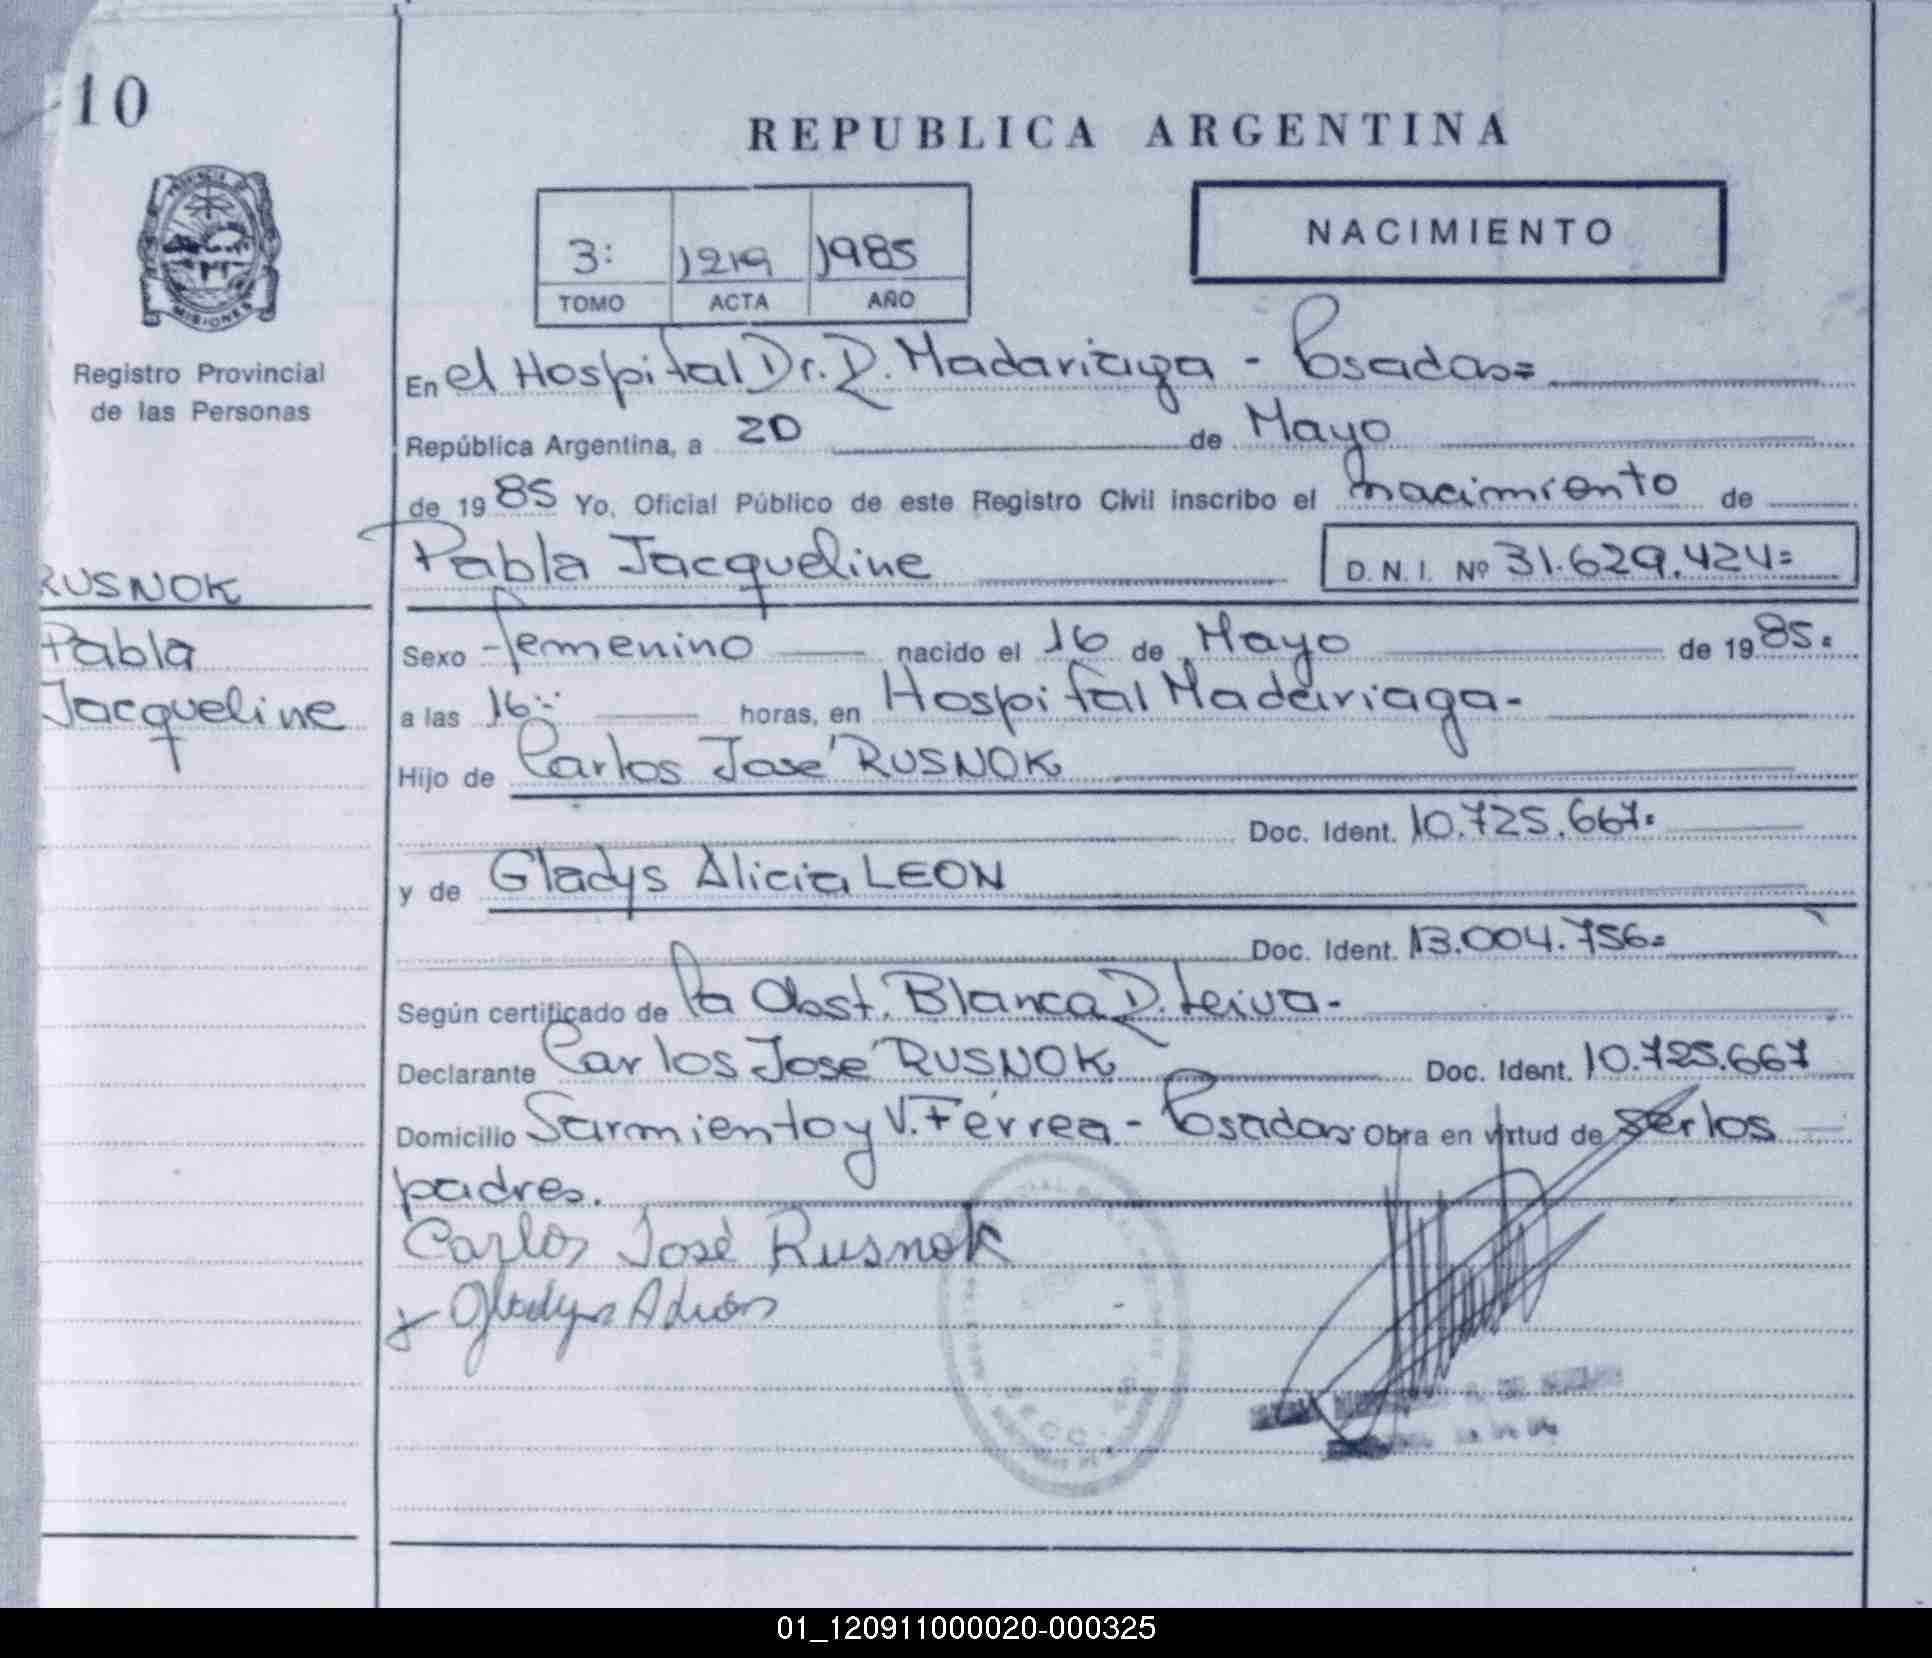 10
REPUBLICA ARGENTINA
PROVINCIA DE
MISIONES
Registro Provincial
de las Personas
3: 1219 1985
TOMO ACTA AÑO
NACIMIENTO
En el Hospital Dr. R. Madariaga - Posadas=
República Argentina, a 20 de Mayo
de 1985 Yo, Oficial Público de este Registro Civil inscribo el nacimiento de
Pabla Jacqueline D. N. I. Nº 31.629.424=
RUSNOK
Pabla
Jacqueline
Sexo femenino nacido el 16 de Mayo de 1985=
a las 16 horas, en Hospital Madariaga-
Hijo de Carlos José RUSNOK
Doc. Ident. 10.725.667=
y de Gladys Alicia LEON
Doc. Ident. 13.004.756=
Según certificado de la Obst. Blanca R. Leiva-
Declarante Carlos José RUSNOK Doc. Ident. 10.725.667
Domicilio Sarmiento y V. Férrea - Posadas. Obra en virtud de ser los
padres.
Carlos José Rusnok
Gladys A León
01_120911000020-000325